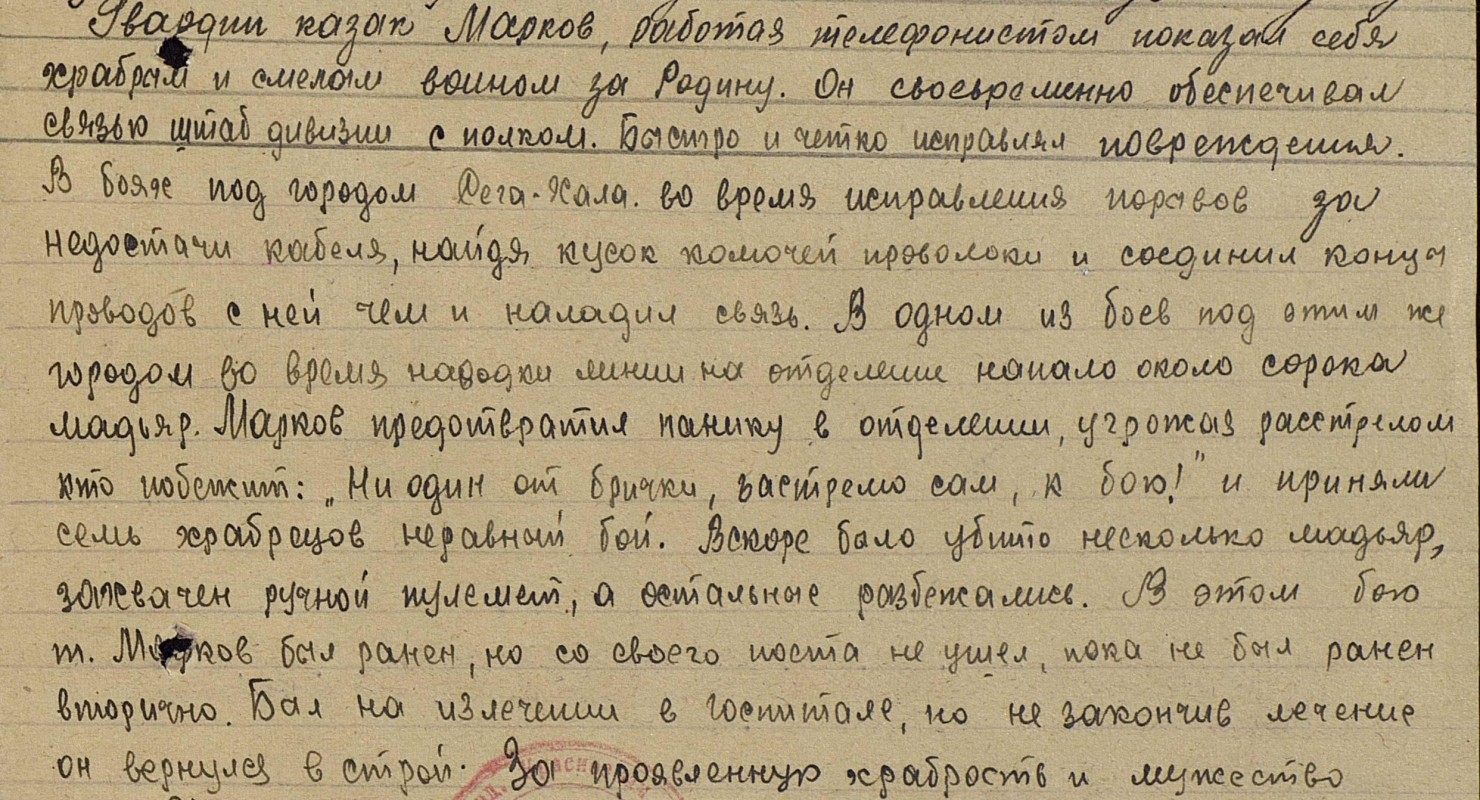 Гвардии казак Марков, работая телефонистом показал себя
храбрым и смелым воином за Родину. Он своевременно обеспечивал
связью штаб дивизии с полком. Быстро и четко исправлял повреждения.
В боях под городом Дега-Хала. во время исправления порывов за
недостачи кабеля, найдя кусок колючей проволоки и соединил концы
проводов с ней чем и наладил связь. В одном из боев под этим же
городом во время наводки линии на отделение напало около сорока
мадьяр. Марков предотвратил панику в отделении, угрожая расстрелом
кто побежит: „Ни один от брички, застрелю сам, к бою!" и приняли
семь храбрецов неравный бой. Вскоре было убито несколько мадьяр,
захвачен ручной пулемет, а остальные разбежались. В этом бою
т. Марков был ранен, но со своего поста не ушел, пока не был ранен
вторично. Был на излечении в госпитале, но не закончив лечение
он вернулся в строй. За проявленную храбрость и мужество